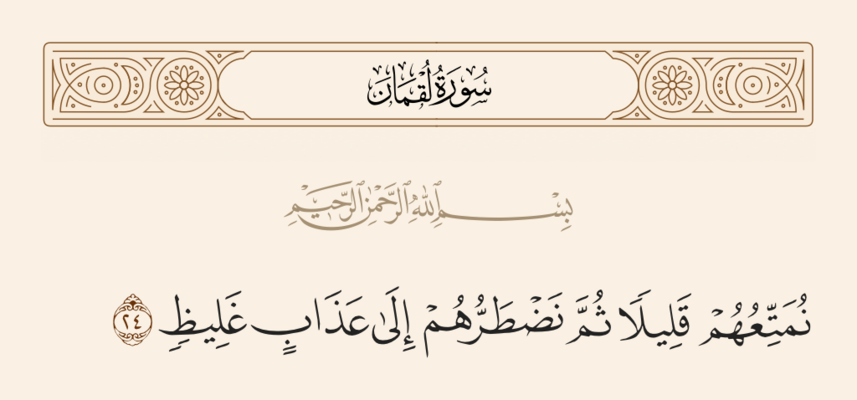 سُورَةُ لُقْمَانَ
بِسْمِ اللَّهِ الرَّحْمَٰنِ الرَّحِيمِ
نُمَتِّعُهُمْ قَلِيلًا ثُمَّ نَضْطَرُّهُمْ إِلَىٰ عَذَابٍ غَلِيظٍ ٢٤